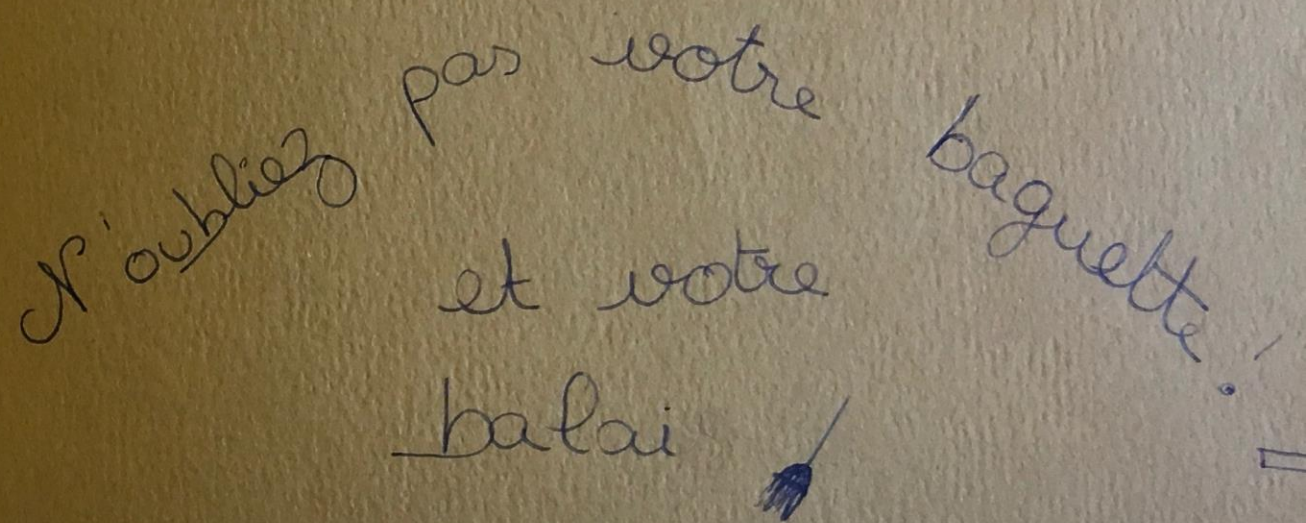 N'oubliez pas votre baguette!
et votre
balai